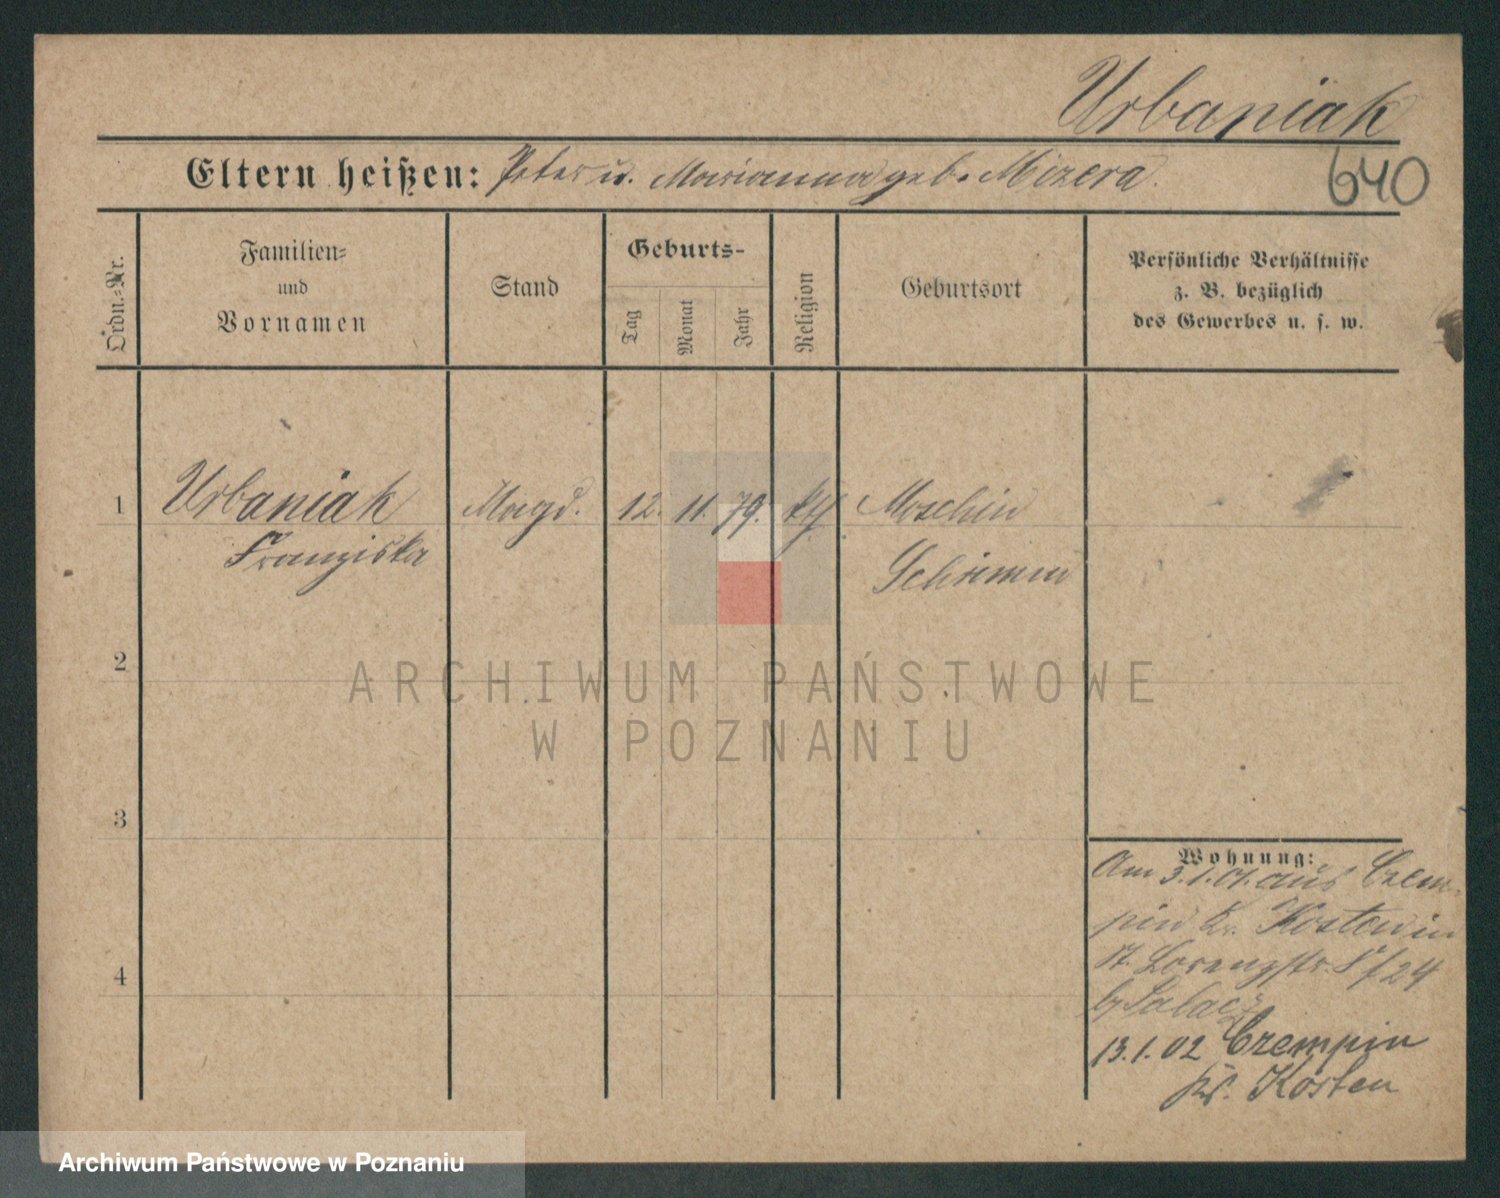 Urbaniak
Eltern heißen: Peter u. Marianna geb. Mizera.
640
Ordn.-Nr.
Familien-
und
Vornamen
Stand
Geburts-
Tag
Monat
Jahr
Religion
Geburtsort
Persönliche Verhältnisse
z. B. bezüglich
des Gewerbes u. s. w.
1
Urbaniak
Franziska
Magd.
12.
11.
79.
Moschin
Schrimm
2
3
4
ARCHIWUM PAŃSTWOWE
W POZNANIU
Wohnung:
Am 3.1.01. aus Czem-
pin Kr. Kosten in
St. Lorenzstr. 24
Salacz
13.1.02 Czempin
Kr. Kosten
Archiwum Państwowe w Poznaniu